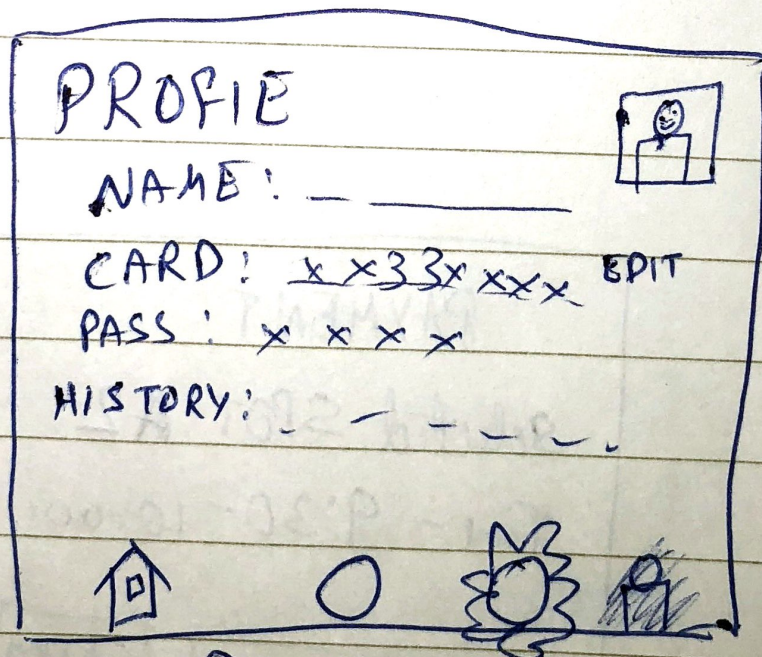 PROFIE
NAME: _ ________
CARD: xx33xxxx EDIT
PASS: xxxx
HISTORY: _ _ _ _ _ _